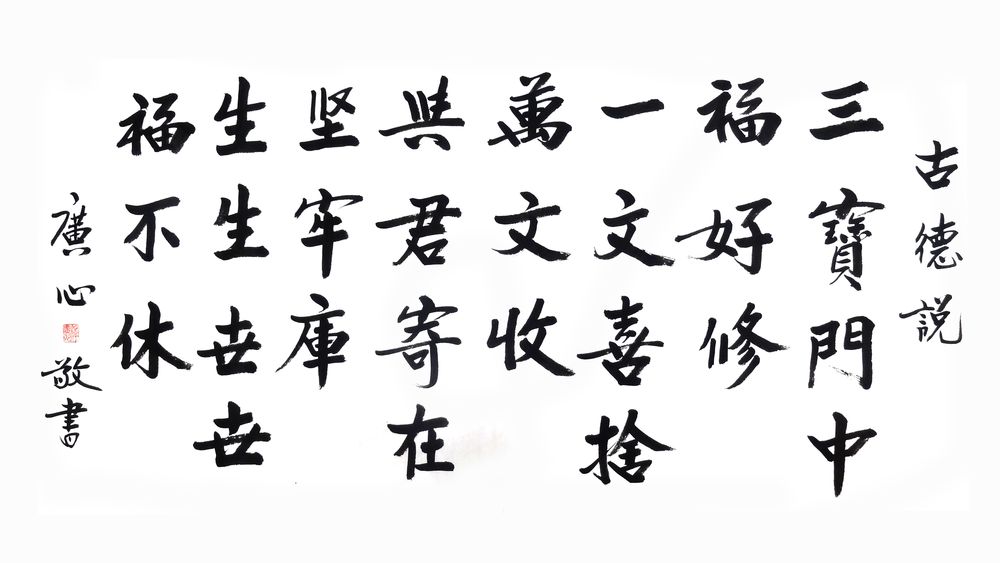 古德説
三寶門中
福好修
一文喜捨
萬文收
與君寄在
坚牢庫
生生世世
福不休
廣心
敬書